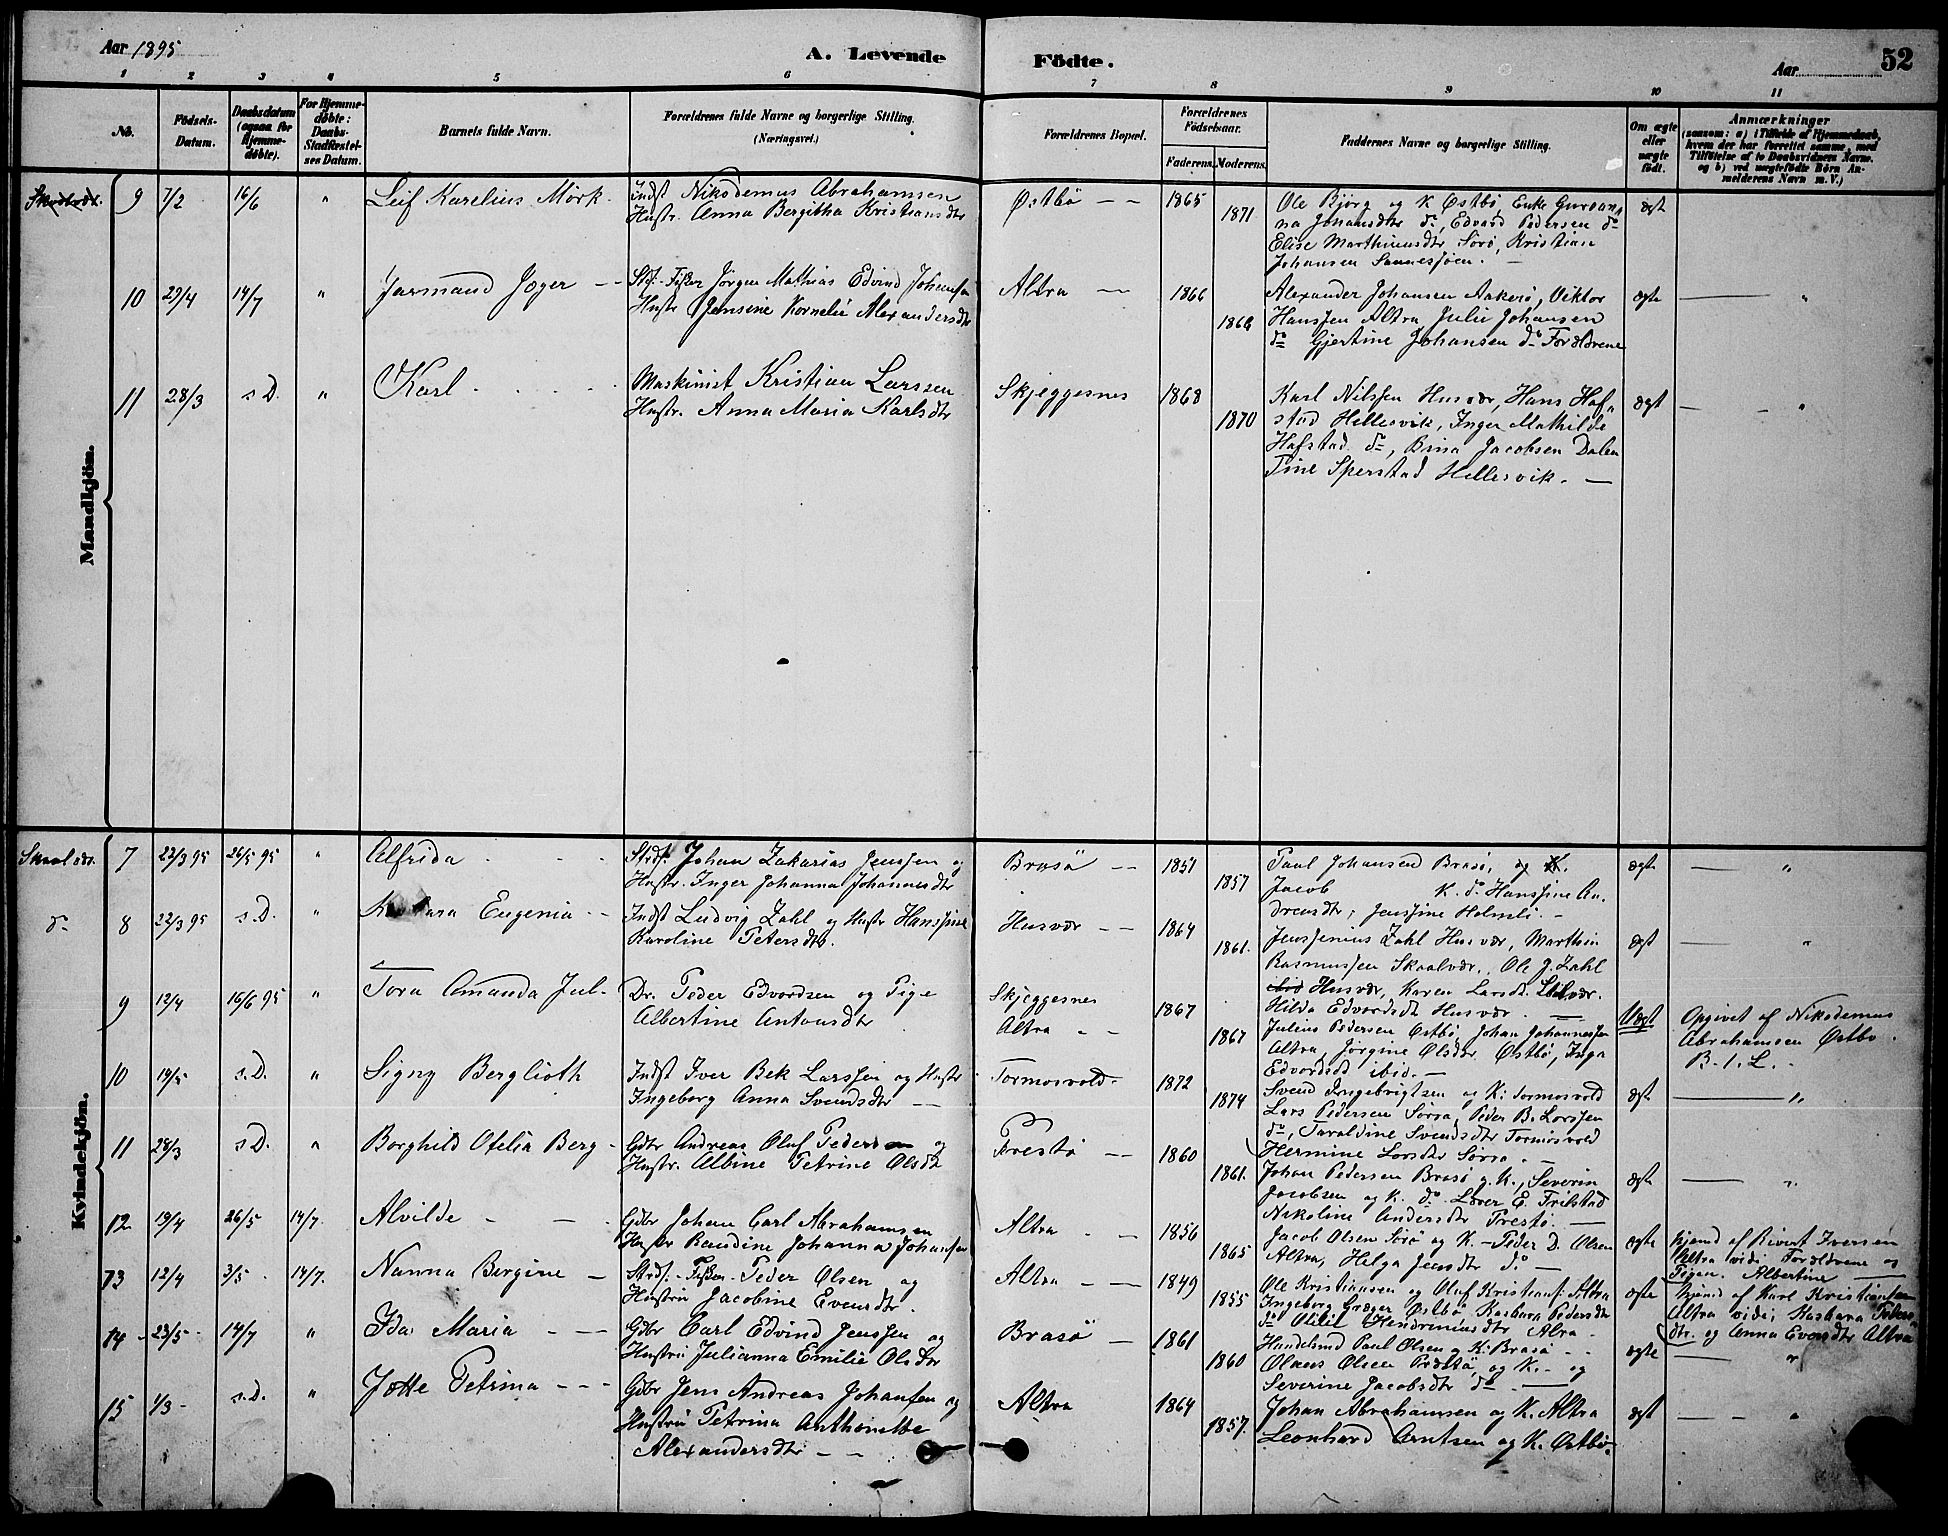 Aar 1895
A. Levende Födte.
Aar
52
1 2 3 4 5 6 7 8 9 10 11
No.
Födsels-Datum.
Daabsdatum (ogsaa for Hjemme-døbte).
For Hjemme-døbte: Daabs-Stadfæstel-ses Datum.
Barnets fulde Navn.
Forældrenes fulde Navne og borgerlige Stilling. (Næringsvei.)
Forældrenes Bopæl.
Forældrenes Födselsaar.
Faderens. Moderens.
Faddernes Navne og borgerlige Stilling.
Om ægte eller uægte födt.
Anmærkninger
(saasom: a) i Tilfælde af Hjemmedaab, hvem der har forrettet samme, med Tilföielse af to Daabsvidners Navne, og b) ved uægtefödte Børn An-melderens Navn m. V.)
Mandkjön.
9 7/2 16/6 " Leif Karelius Mörk -
Indst Nikodemus Abrahamsen
Hustr. Anna Bergitha Kristiansdtr
Østbö - - 1865 1871
Ole Bjørg og K Østbö, Enke
na Johansdtr do, Edvard Pedersen do
Elise Marthinusdtr Sörö, Kristian
Johansen Sannesjöen. -
ægt
10 29/4 14/7 " Jarmand Joger - -
Stds. Fisker Jørgen Mathias Edvind Johansen
Hustr Jensine Kornelie Alexandersdtr
Altra - 1866 1868
Alexander Johansen Aakerö, Viktor
Hanssen Altra Julie Johansen
do Gjertine Johansen do Forældrene
ægte - "
11 28/3 s.D. " Karl - - -
Maskinist Kristian Larssen
Hustr. Anna Maria Karlsdtr
Skjeggesnes 1868 1870
Karl Nilssen Husvær, Hans Haf-
stad Hellesvik, Inger Mathilde
Hafstad do, Bina Jacobsen Dalen
Tine Sperstad Hellesvik. -
ægt - - "
Kvindekjön.
Skaalvær. 7 22/3 95 26/5 95 " Alfrida - - -
Strds. Johan Zakarias Jenssen og
Hustr. Inger Johanna Johannesdtr
Brasö - - 1851 1857
Paul Johansen Brasö, og K.
Jacob K. do Hanssine An-
dreasdtr, Jenssine Holmsli. -
ægte - "
do 8 22/3 95 s.D. " Eugenia - -
Indst Ludvig Zahl og Hustr Hanssine
Karoline Petersdtr.
Husvær - - 1864 1861.
Jenssenius Zahl Husvær, Marthin
Rasmussen Skaalvær., Ole J. Zahl
Husvær, Karen Larsdt.
Hilda Edvardsdt Husvær. -
ægt - "
9 12/4 16/6 95 " Tora Amanda Jul-
Dr. Peder Edvardsen og Pige
Albertine Antonsdtr
Skjeggesnes
Altra - - 1867 1867
Julius Pedersen Östbö, Johan Johannessen
Altra, Jörgine Olsdtr Østbö, Inga
Edvardsdt ibid. -
Uægt
Opgivet af Nikodemus
Abrahamsen Østbö.
B. 1. L. -
10 19/5 s.D. " Signy Berglioth
Indst Iver Bek Larssen og Hustr
Ingeborg Anna Svendsdtr -
Tormosvold - 1872 1874
Svend Ingebrigtsen og K: Tormosvold
Lars Pedersen Sörra, Peder B. Larssen
do, Taraldine Svendsdtr Tormosvold
Hermine Larsdtr Sörra -
ægt - "
11 28/3 s.D. " Borghild Otelia Berg -
Gdbr Andreas Oluf Pedersen og
Hustr. Albine Petrine Olsdt
Prestö - - 1860 1861.
Johan Pedersen Brasö og K., Severin
Jacobsen og K. do Lærer E. Frilstad
Nikoline Andersdtr Prestö. -
ægte - "
12 19/4 26/5 14/7. Alvilde - -
Gdbr Johan Carl Abrahamsen
Hustr Raudine Johanna Johansen
Altra - - 1856 1865
Jacob Olsen Sörö og K. - Peder D. Olsen
Altra, Helga Jensdtr do -
ægte
hjemd af Rivert Iversen
Altra vidi Forældrene og
Pigen Albertine -
13 12/4 3/5 - 14/7. Nanna Bergine -
Strds. - Fisker - Peder Olsen og
Hustru Jacobine Evensdtr.
Altra - - 1849 1855
Ole Kristiansen og Oluf Kristians. Altra
Ingeborg Græger Østbö Rasbara Pedersdtr
do Otilie Hendriniusdtr Altra -
ægte
hjemd af Karl Kristiansen
Altra vidi; Rasbara Peders-
dtr. og Anna Evensdtr Altra
14 - 23/5 - 14/7 " Ida Maria - -
Gdbr Carl Edvind Jenssen og
Hustru Julianna Emilie Olsdtr
Brasö - 1861 1860
Handelsmd Paul Olsen og K: Brasö - -
Olaus Olsen Prestö og K. - og
Severine Jacobsdtr do -
ægte - "
15 1/3 - s.D. " Jætte Petrina - - -
Gdbr Jens Andreas Johansen og
Hustru Petrina Anthonette
Alexandersdtr - -
Altra 1864 1857.
Johan Abrahamsen og K. Altra
Leonhard Arntsen og K. Østbö -
ægt - - "